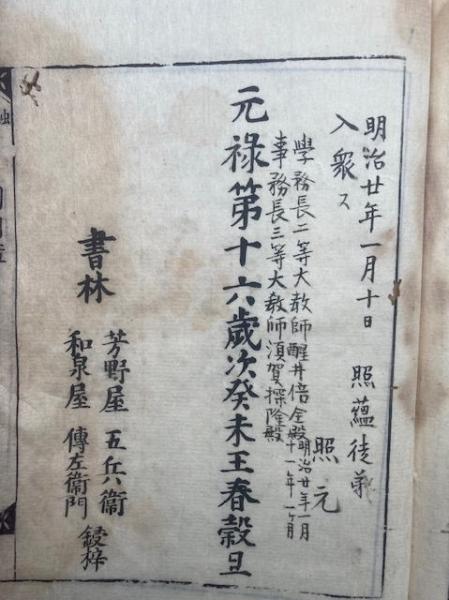 明治廿年一月十日 照蘊徒弟
入衆ス 照元
學務長二等大教師醒井倍全殿 明治廿年一月
事務長三等大教師須賀探隆殿 十一年一ヶ月
元祿第十六歳次癸未王春穀旦
書林
芳野屋 五兵衞
和泉屋 傳左衞門 鋟梓